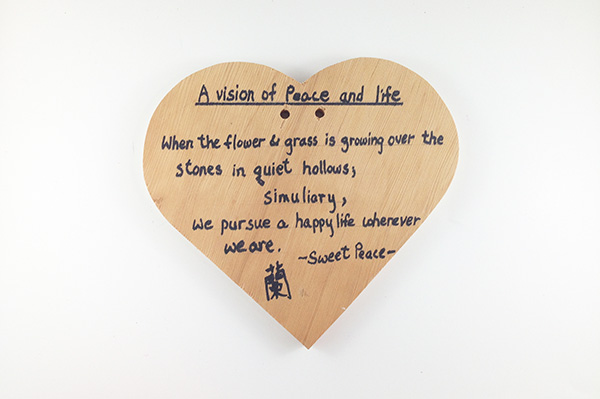 A vision of Peace and life
When the flower & grass is growing over the
stones in quiet hollows;
simuliary,
we pursue a happy life wherever
we are.
~Sweet Peace~
蘭